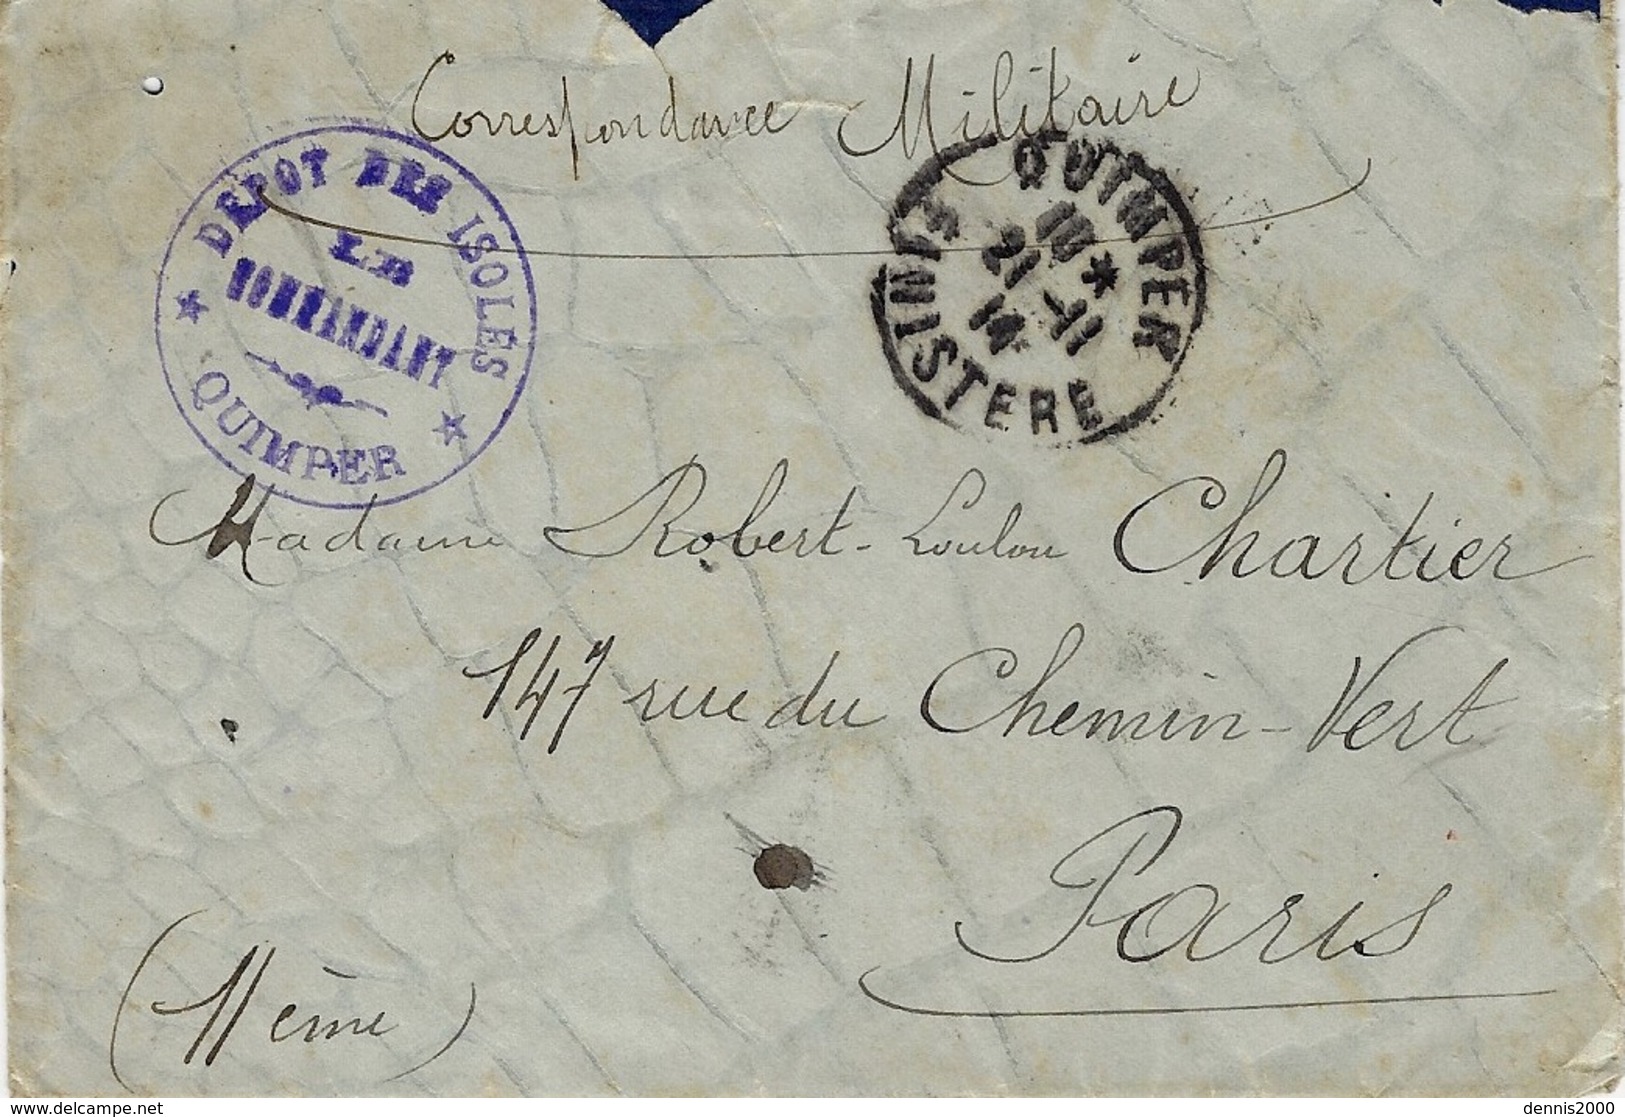 Correspondance Militaire
DEPOT DES ISOLÉS
LE
COMMANDANT
QUIMPER
QUIMPER
10 *
21 -11
14
FINISTERE
Madame Robert-Loulou Chartier
147 rue du Chemin-Vert
Paris
(11ème)
www.delcampe.net
dennis2000